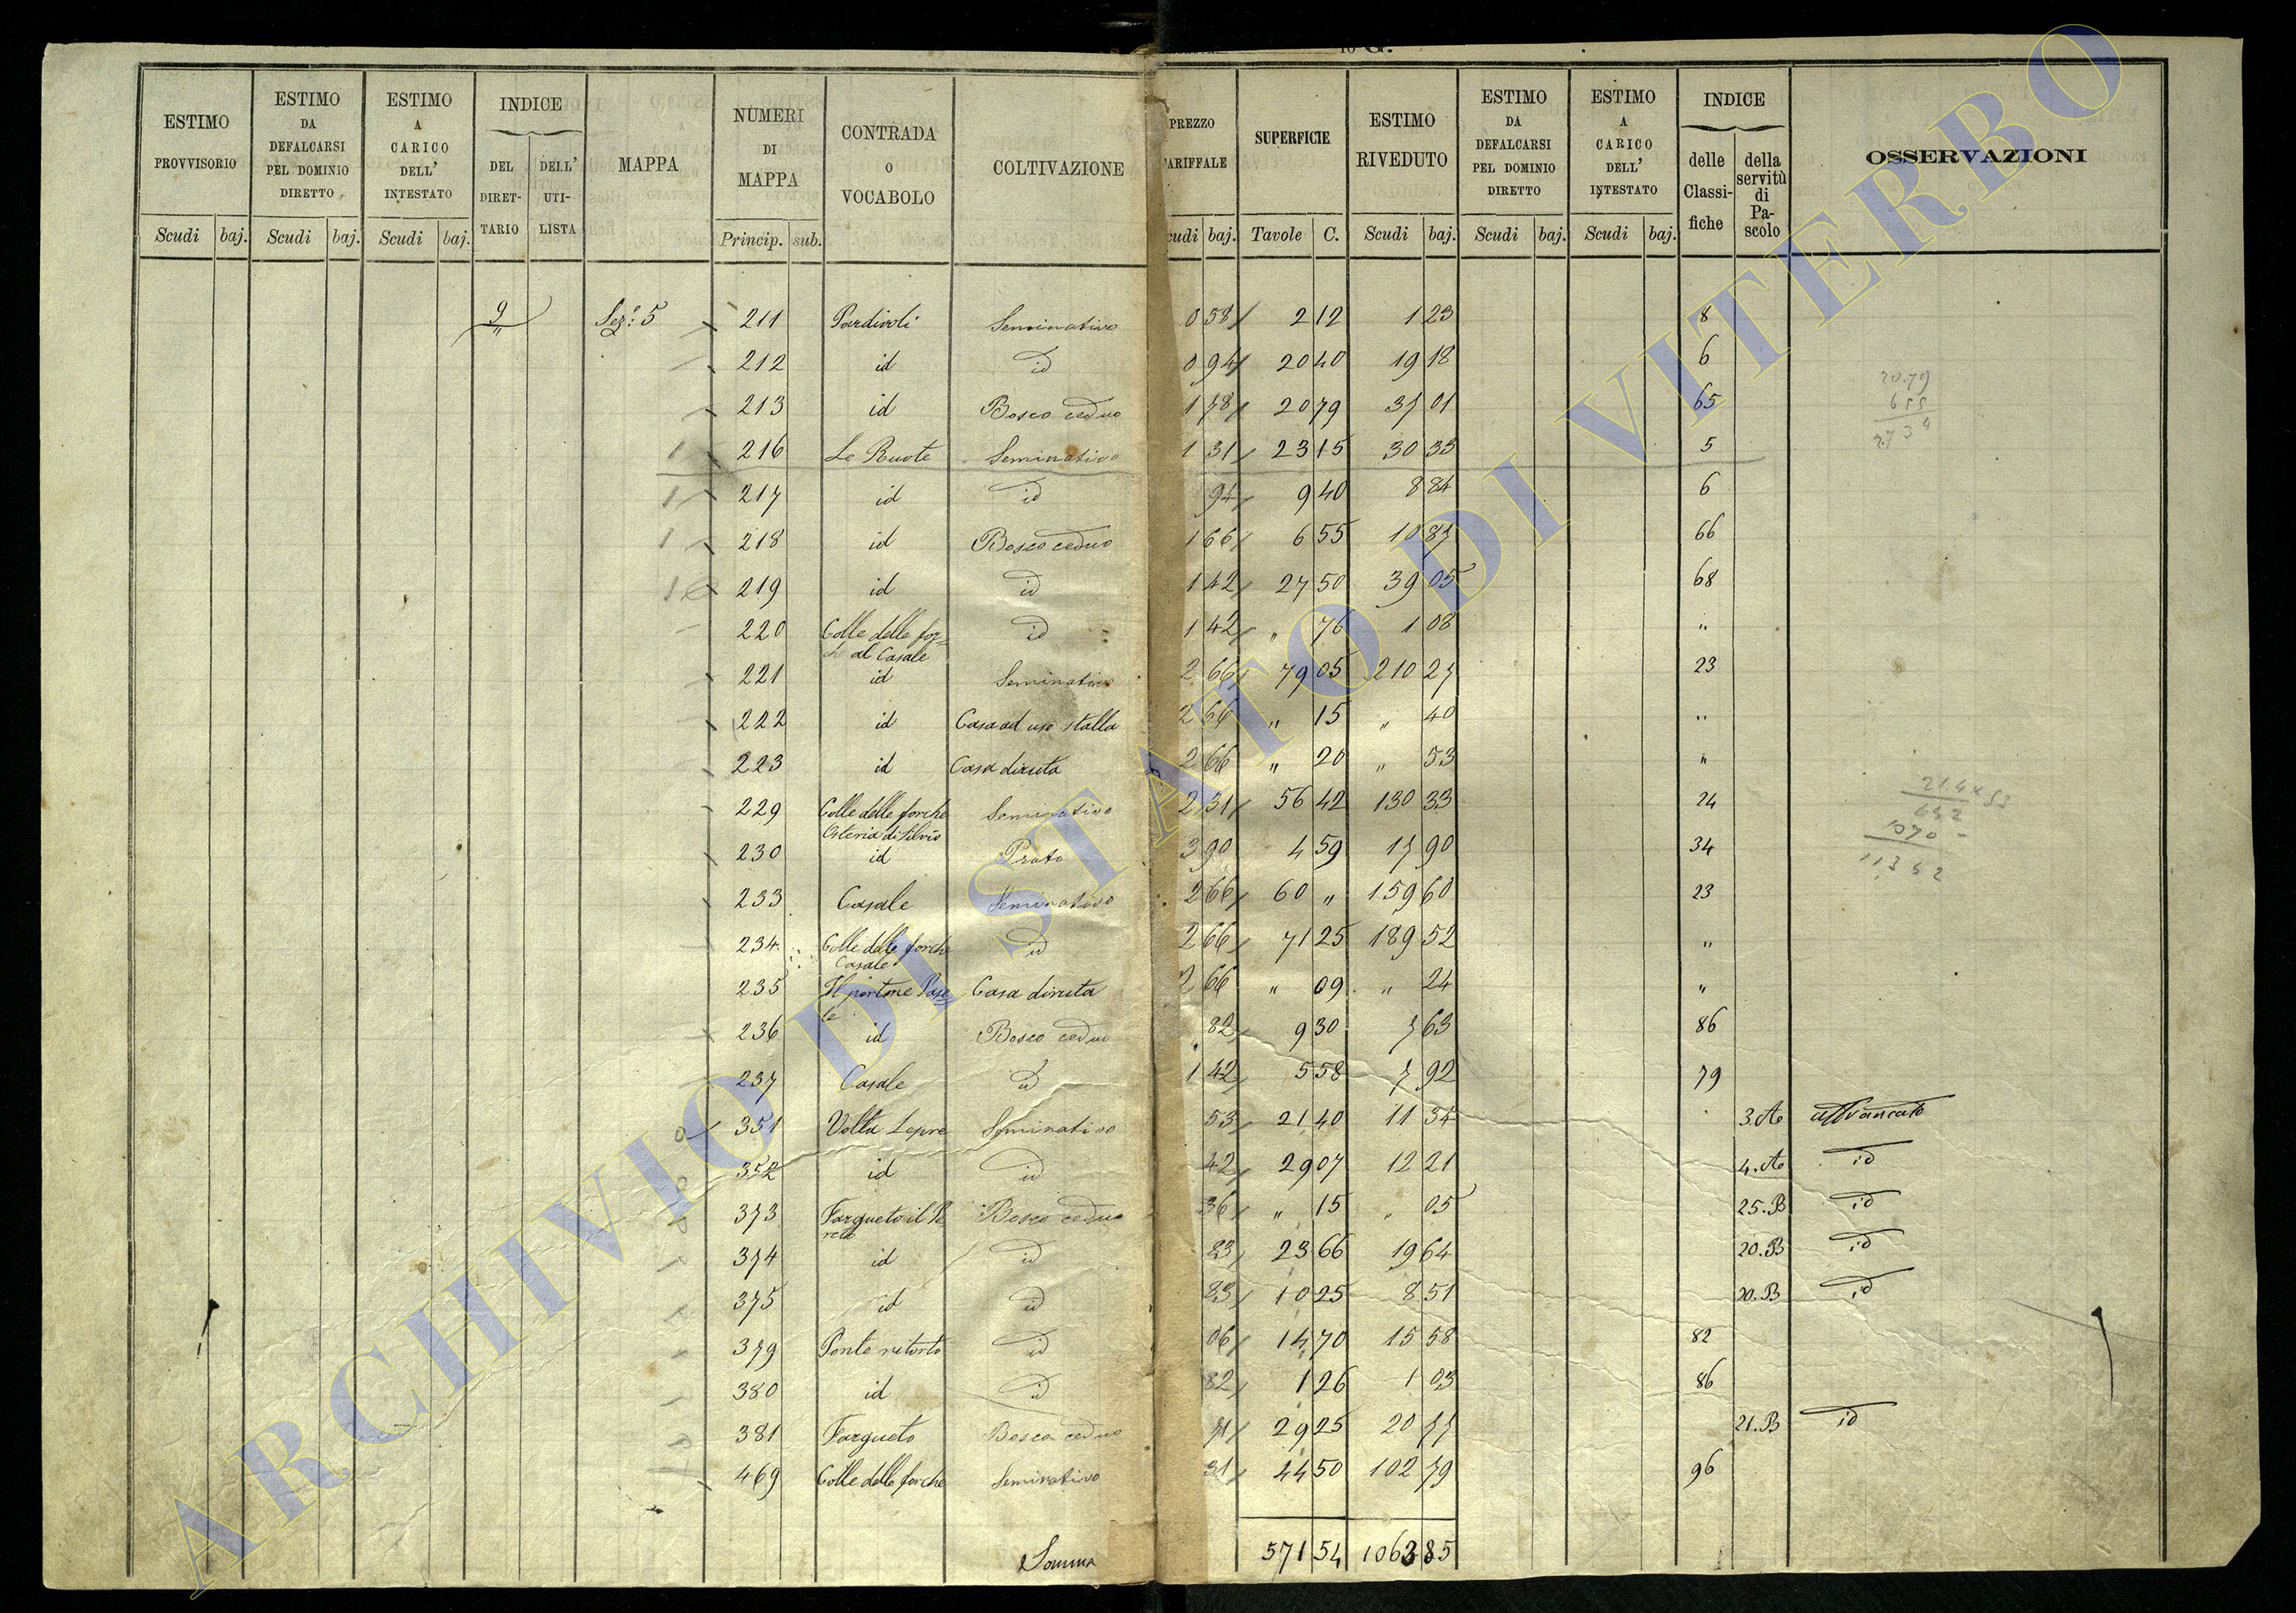 ESTIMO PROVVISORIO Scudi baj.
ESTIMO DA DEFALCARSI PEL DOMINIO DIRETTO Scudi baj.
ESTIMO A CARICO DELL' INTESTATO Scudi baj.
INDICE DEL DIRETTARIO DELL' UTILISTA
MAPPA
NUMERI DI MAPPA Princip. sub.
CONTRADA o VOCABOLO
COLTIVAZIONE
PREZZO TARIFFALE Scudi baj.
SUPERFICIE Tavole C.
ESTIMO RIVEDUTO Scudi baj.
ESTIMO DA DEFALCARSI PEL DOMINIO DIRETTO Scudi baj.
ESTIMO A CARICO DELL' INTESTATO Scudi baj.
INDICE delle Classifiche della servitù di Pascolo
OSSERVAZIONI
9 Sez: 5 211 Pardivoli Seminativo 0 58 2 12 1 23 8
212 id id 0 94 20 40 19 18 6
213 id Bosco ceduo 1 78 20 79 37 01 65
216 Le Ruote Seminativo 1 31 23 15 30 33 5
217 id id 94 9 40 8 84 6
218 id Bosco ceduo 1 66 6 55 10 87 66
219 id id 1 42 27 50 39 05 68
220 Colle delle for= che al Casale id 1 42 " 76 1 08 "
221 id Seminativo 2 66 79 05 210 27 23
222 id Casa ad uso stalla 2 66 " 15 " 40 "
223 id Casa diruta 2 66 " 20 " 53 "
229 Colle delle forche Osteria di Silvio Seminativo 2 31 56 42 130 33 24
230 id Prato 3 90 4 59 17 90 34
233 Casale Seminativo 2 66 60 " 159 60 23
234 Colle delle forche Casale id 2 66 71 25 189 52 "
235 Il portone Casa= le Casa diruta 2 66 " 09 " 24 "
236 id Bosco ceduo 82 9 30 7 63 86
237 Casale id 1 42 5 58 7 92 79
351 Volta Lepre Seminativo 53 21 40 11 34 3.A affrancato
352 id id 42 29 07 12 21 4.A id
373 Fargneto il Bosco ceduo 36 " 15 " 05 25.B id
374 id id 83 23 66 19 64 20.B id
375 id id 83 10 25 8 51 20.B id
379 Ponte ritorto id 06 14 70 15 58 82
380 id id 82 1 26 1 03 86
381 Fargneto Bosco ceduo 71 29 25 20 77 21.B id
469 Colle delle forche Seminativo 31 44 50 102 79 96
Somma 571 54 1063 85
20.79
655
27 34
ARCHIVIO DI STATO DI VITERBO